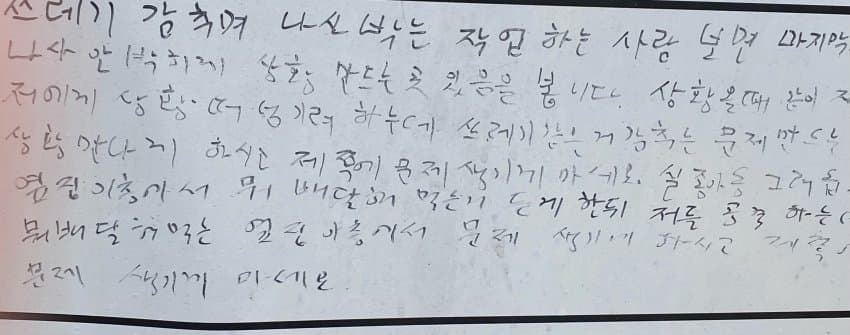 쓰레기 감추며 나사 박는 작업 하는 사람 보면 마지막
나사 안 박히게 상황 만드는 곳 있음을 봅니다. 상황 올때 같이
저에게 상황 떠 넘기려 하는데 쓰레기 같은 거 감추는 문제 만드는
상황 만나지 하시고 제 쪽에 문제 생기게 마세요. 그러
옆집 이층에서 뭐 배달해 먹는지 한뒤 저를 공격 하는
뭐 배달해 먹는 옆집 이층에서 문제 생기게 하시고 제 쪽
문제 생기게 마세요